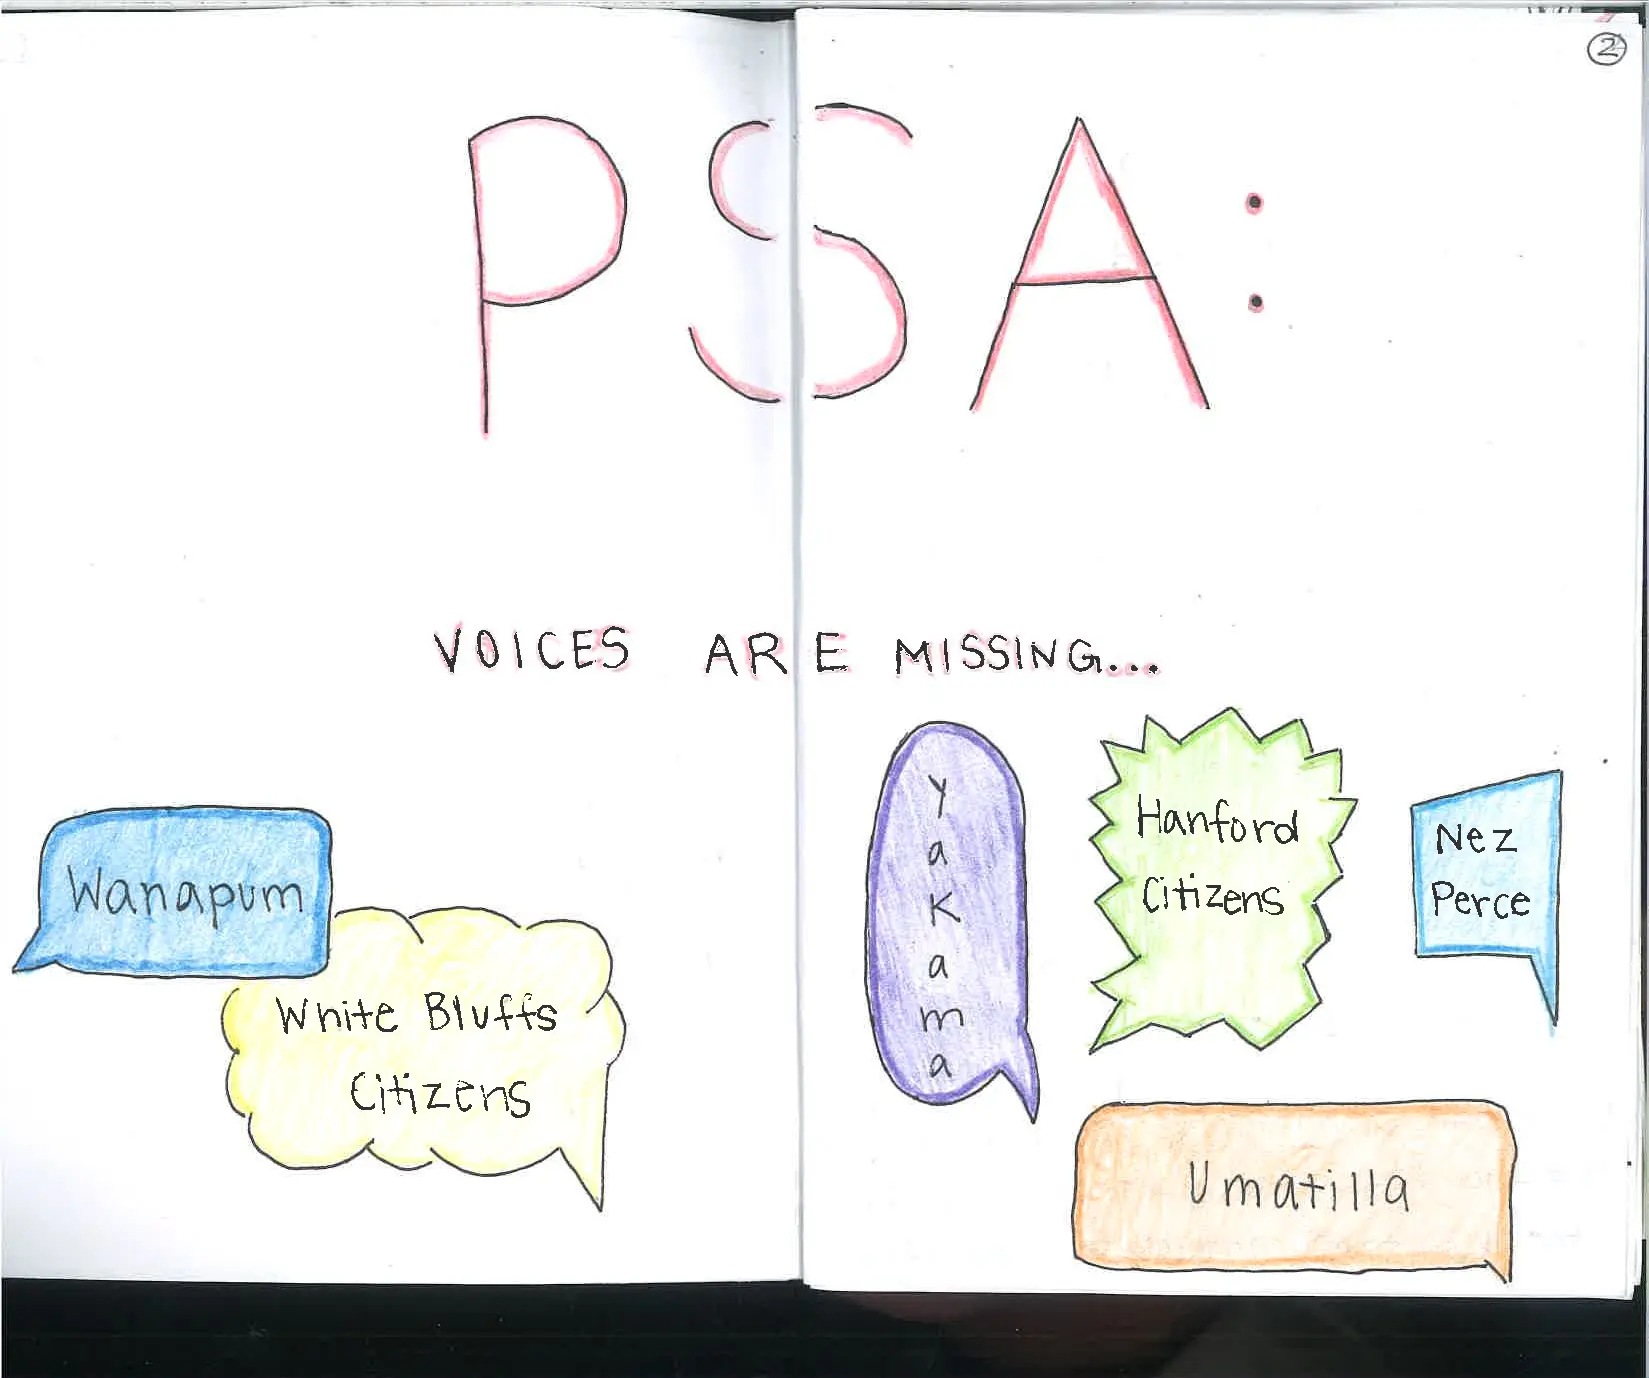 2
PSA:
VOICES ARE MISSING...
Wanapum
White Bluffs
Citizens
Yakama
Hanford
Citizens
Nez
Perce
Umatilla